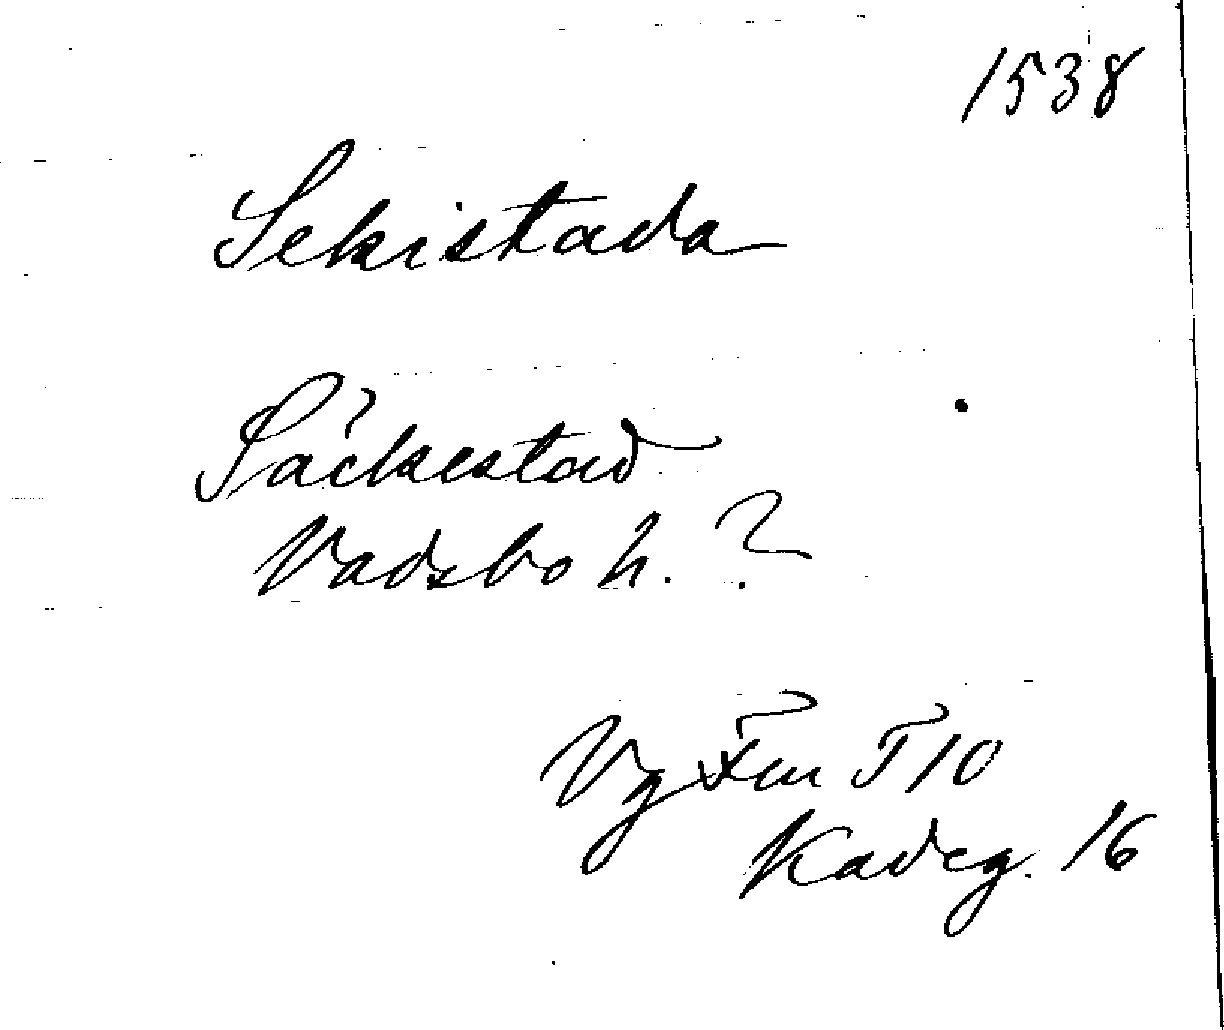 1538
Sekistada
Säckestad
Vadsbo h. ?
Vg Fru T 10
Kadeg. 16